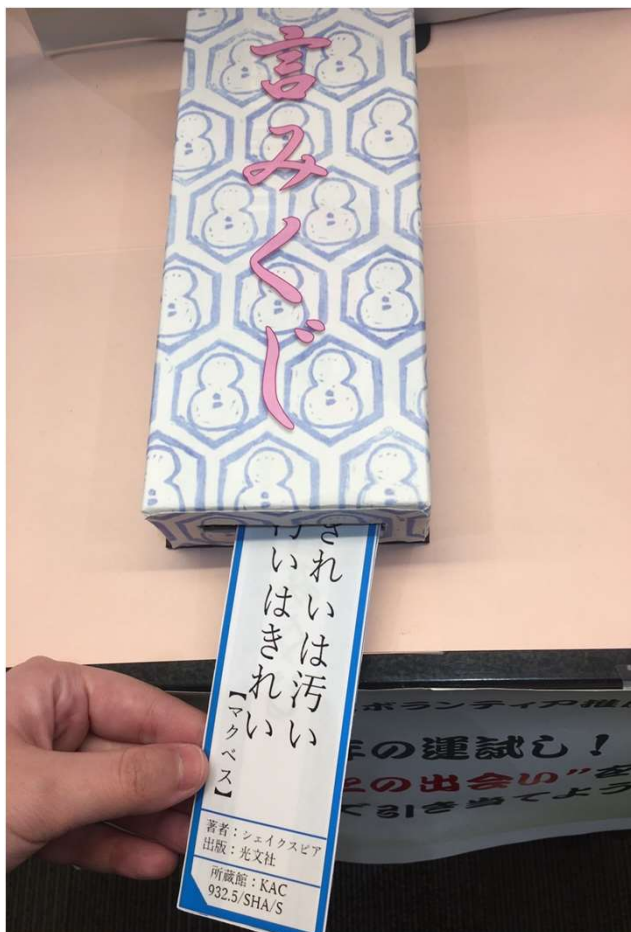 言みくじ
きれいは汚い
汚いはきれい
【マクベス】
著者：シェイクスピア
出版：光文社
所蔵館：KAC
932.5/SHA/S
ボランティア推
年の運試し！
との出会い”を
て引き当てよう